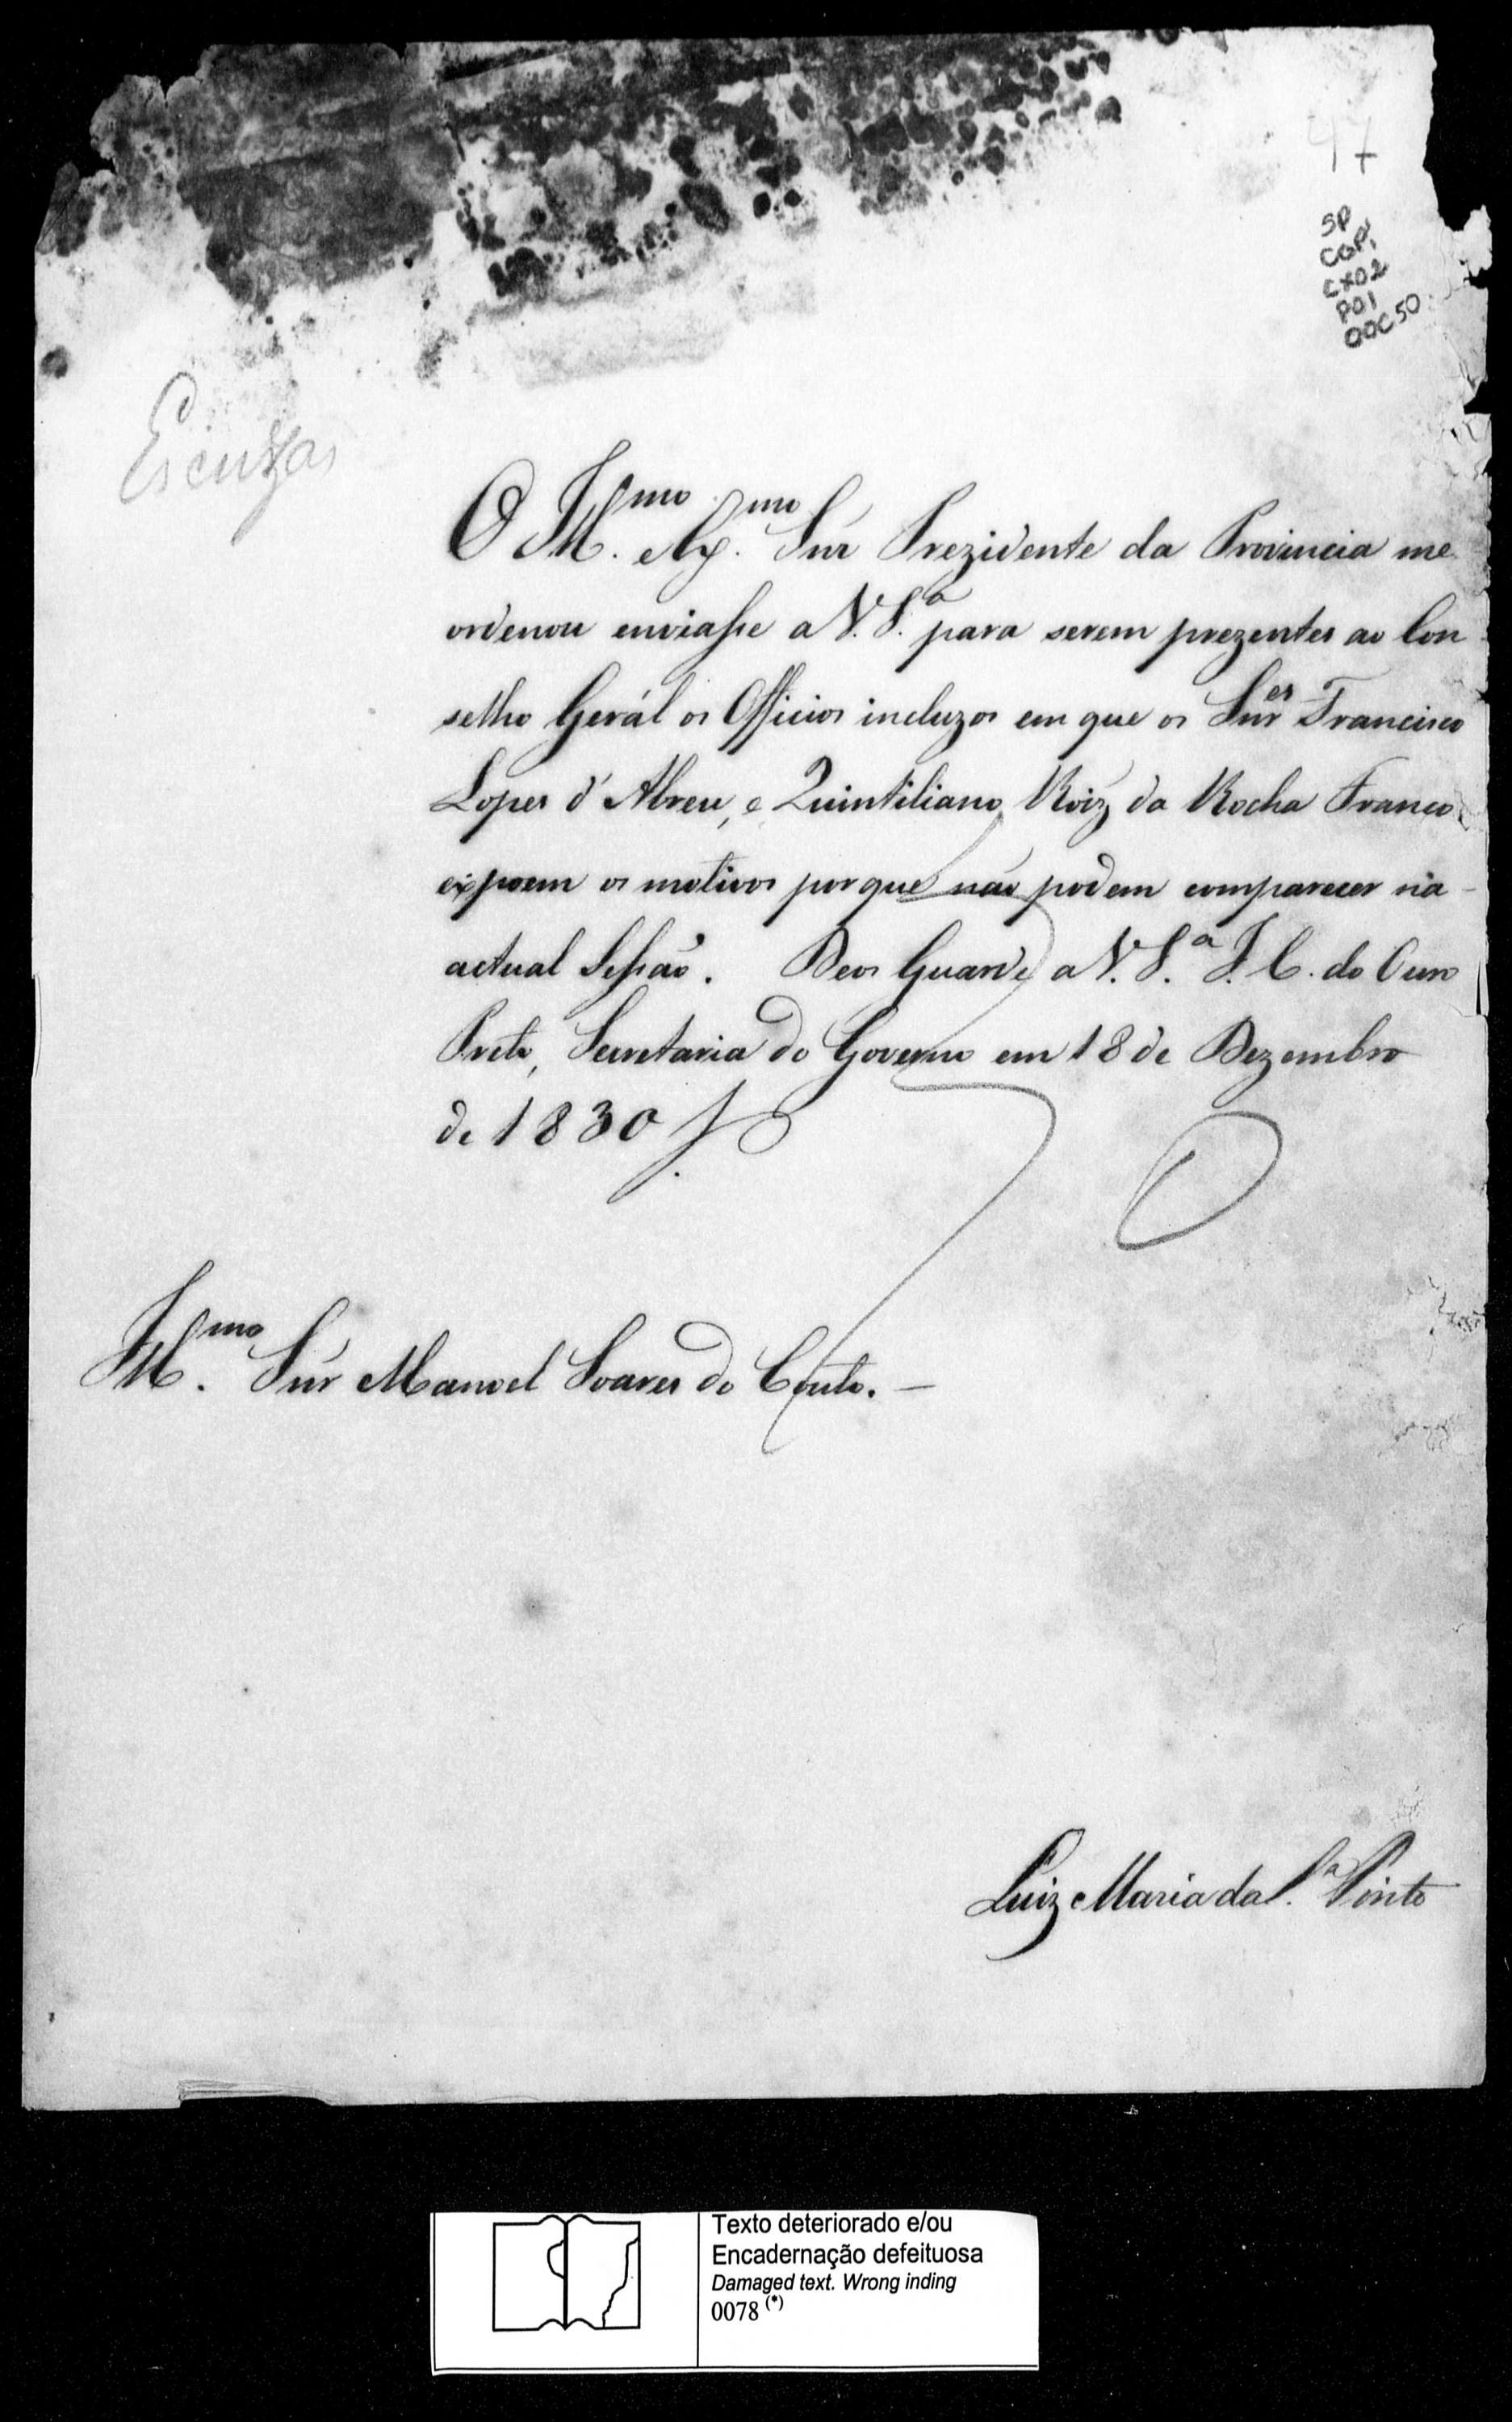 47
SP
CGP1
CX02
P01
DOC50
Escuzas
O Illmo. Exmo. Snr Prezidente da Provincia me
ordenou enviasse a V. S.ª para serem prezentes ao Con-
selho Gerál os Officios incluzos em que os Snres Francisco
Lopes d'Abreu, e Quintiliano Roiz da Rocha Franco
expoem os motivos por que não podem comparecer na
actual Sessão. Deos Guarde a V. S.ª I. C. do Ouro
Preto, Secretaria do Governo em 18 de Dezembro
de 1830
Illmo. Snr Manoel Soares do Couto. —
Luiz Maria da S.ª Pinto
Texto deteriorado e/ou
Encadernação defeituosa
Damaged text. Wrong inding
0078 (*)